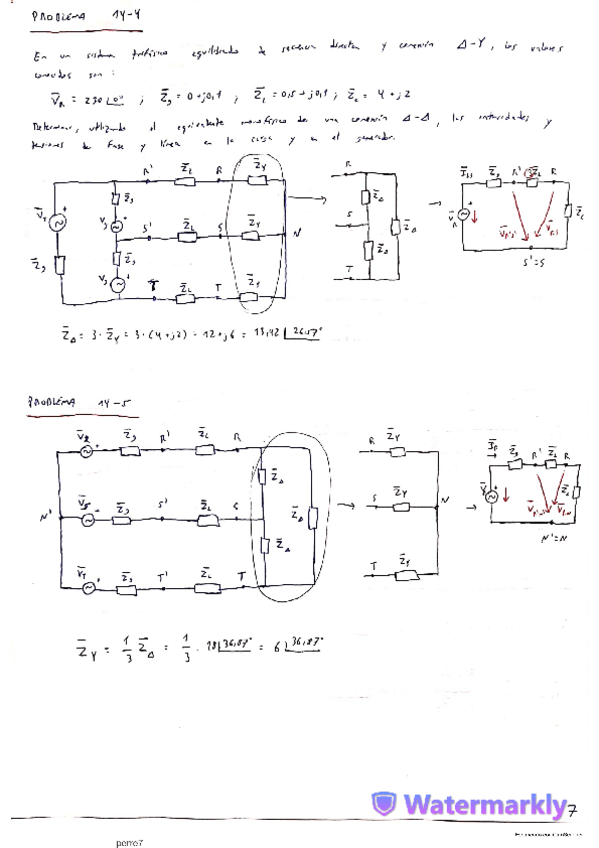 PROBLEMA 14-4
En un sistema trifásico equilibrado de secuencia directa y conexión Δ-Y, los valores
conocidos son:
V̄R = 230∠0° ; Z̄g = 0+j0,1 ; Z̄L = 0,5+j0,1 ; Z̄c = 4+j2
Determinar, utilizando el equivalente monofásico de una conexión Δ-Δ, las intensidades y
tensiones de fase y línea en la carga y en el generador.
R' Z̄L R Z̄Y
S' Z̄L S Z̄Y N
T Z̄L T Z̄Y
R Z̄Δ
S Z̄Δ Z̄Δ
T
Z̄g R' 3Z̄L R
V̄R
S'=S
Z̄Δ = 3·Z̄Y = 3·(4+j2) = 12+j6 = 13,42∠26,57°
PROBLEMA 14-5
V̄R Z̄g R' Z̄L R
Z̄Δ
N' V̄S Z̄g S' Z̄L S Z̄Δ
Z̄Δ
V̄T Z̄g T' Z̄L T
R Z̄Y
S Z̄Y N
T Z̄Y
Z̄g R' Z̄L R
N'=N
Z̄Y = 1/3 Z̄Δ = 1/3 · 18∠36,87° = 6∠36,87°
Watermarkly
7
perre7